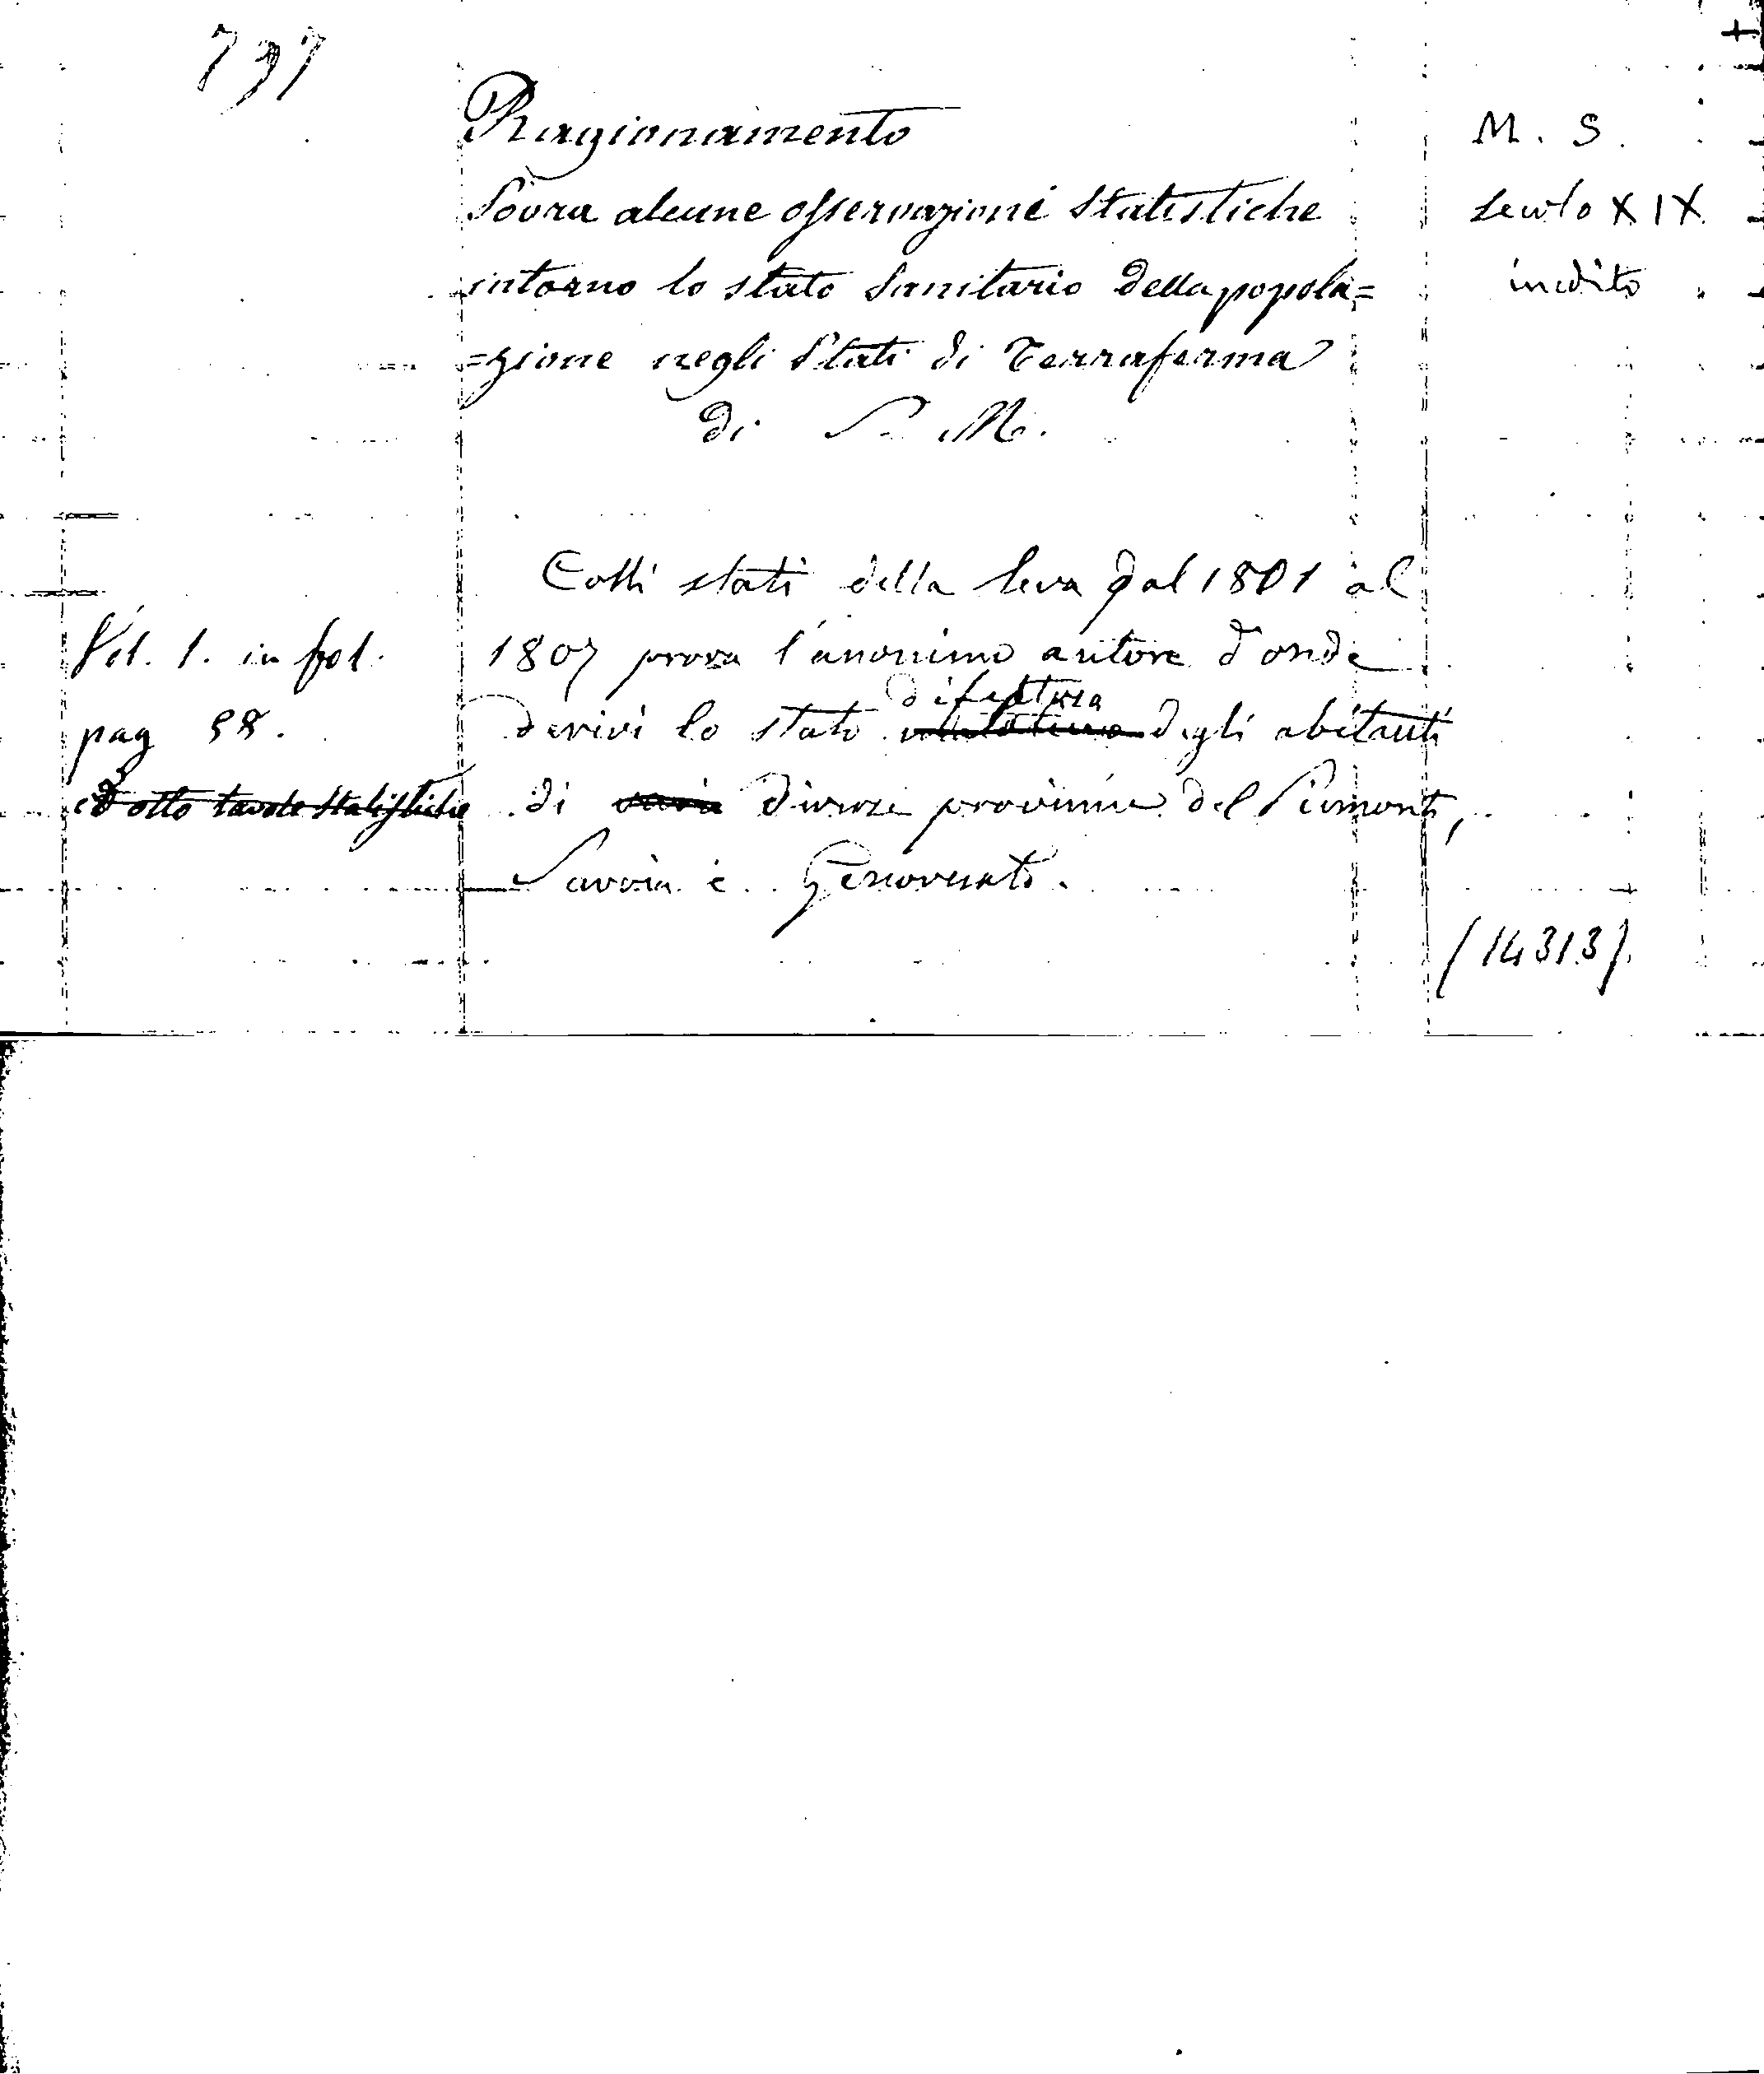 797
Ragionamento
Sovra alcune osservazioni Statistiche
intorno lo stato Sanitario della popola=
=zione negli Stati di Terraferma
di S. M.
M. S.
Secolo XIX
inedito
Colli stati della leva dal 1801 al
1807 prova l'anonimo autore d'onde
difettura
derivi lo stato degli abitanti
di varie diverse provincie del Piemonte,
Savoia e Genovesato.
Vol. 1. in fol.
pag 58.
ed otto tavole statistiche
(14313)